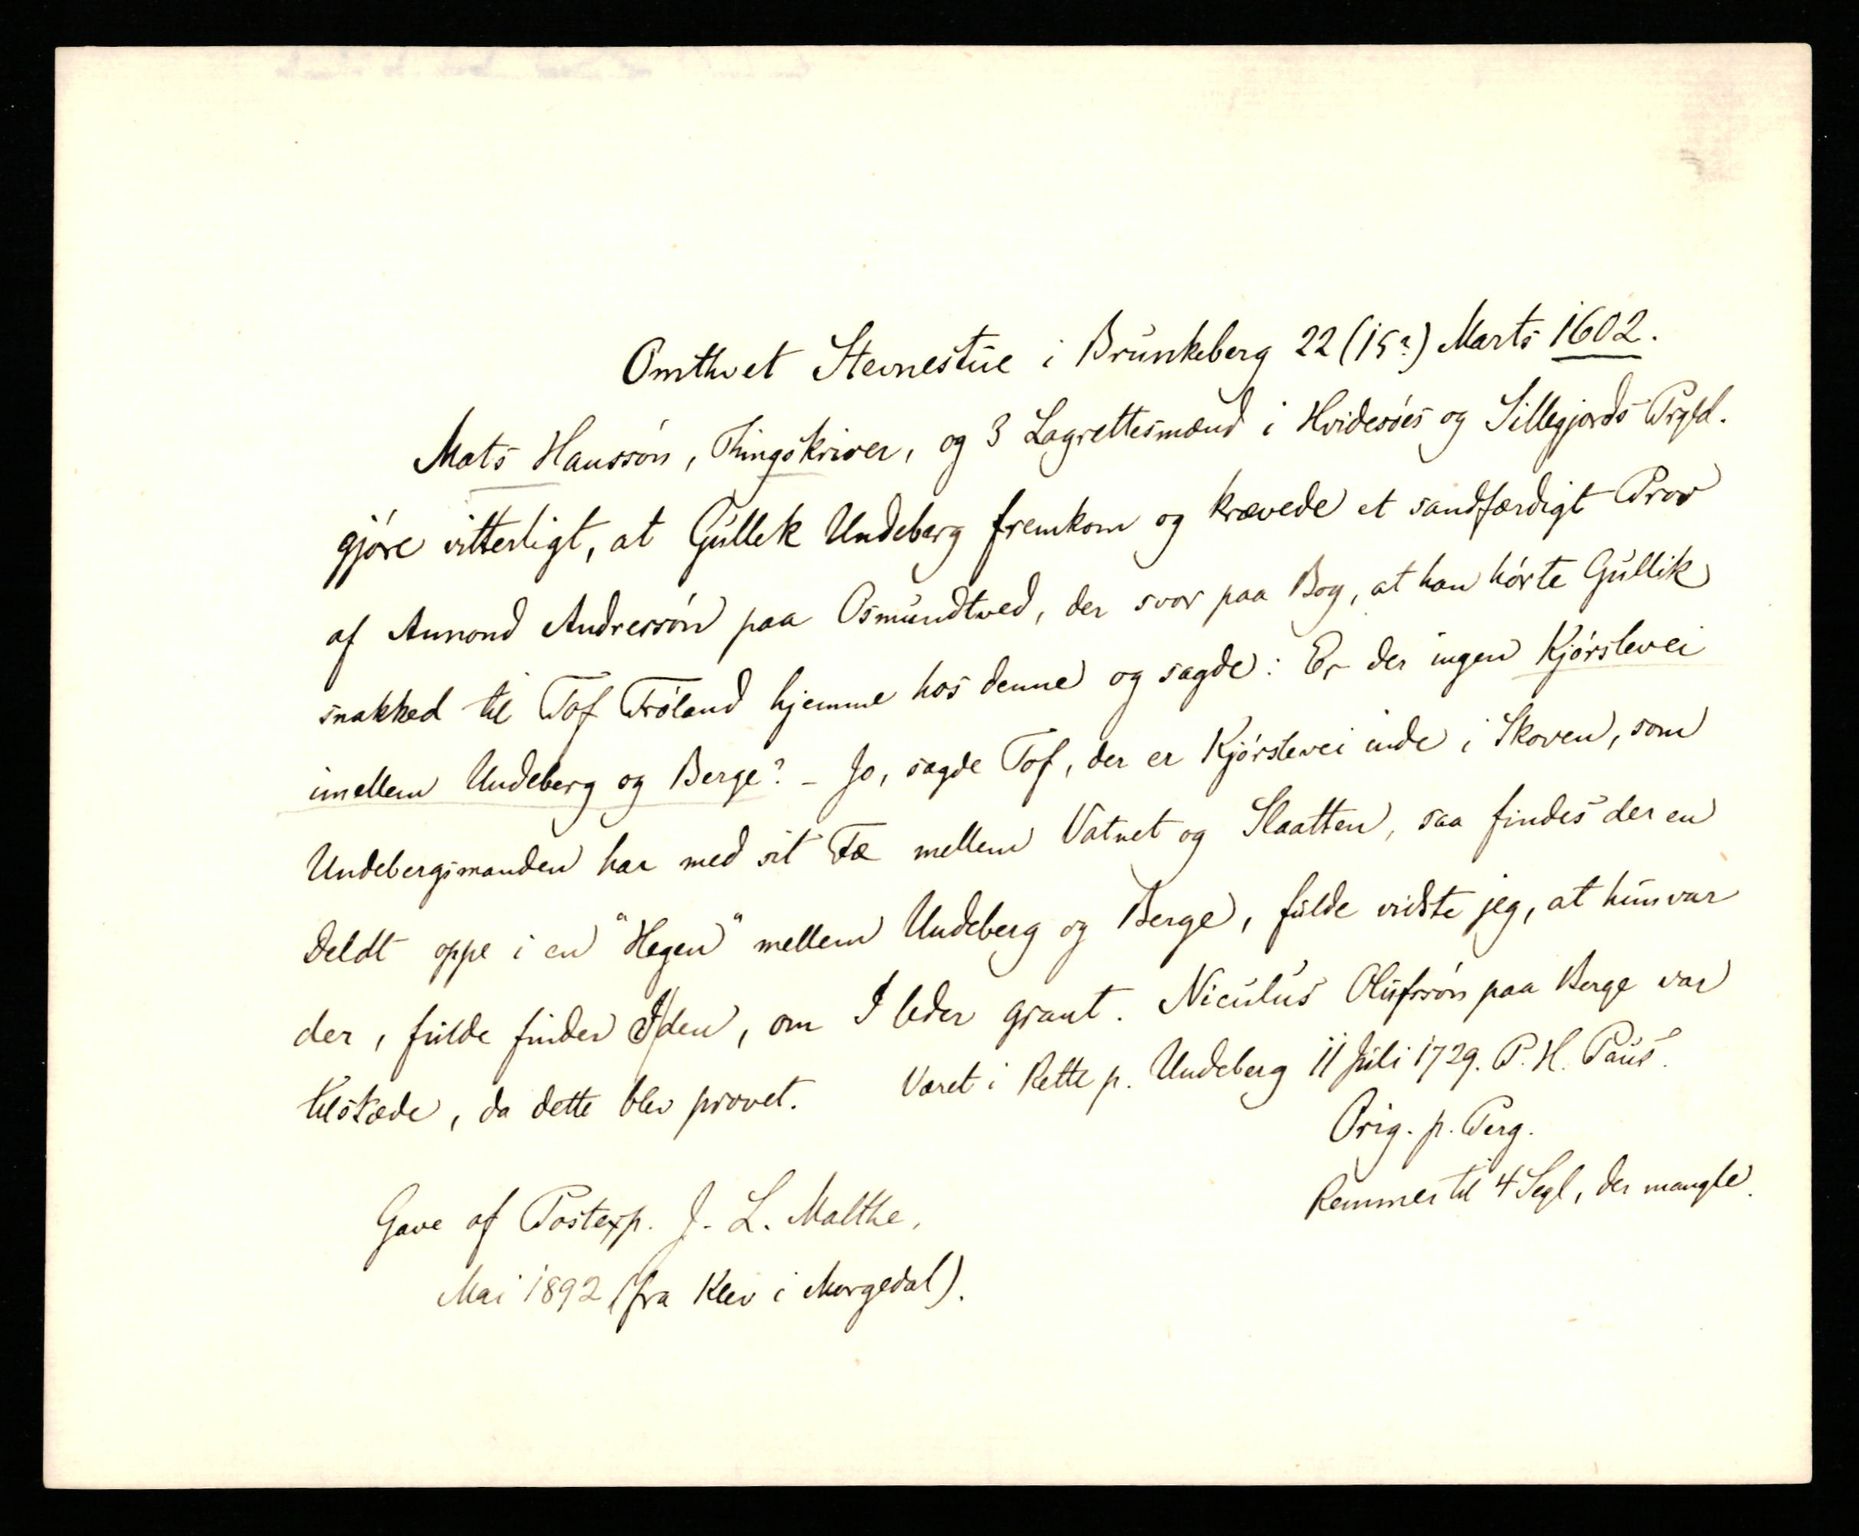 Omthvet Stevnestue i Brunkeberg 22 (15?) Marts 1602.
Mats Hanssøn, Thingskriver, og 3 Lagrettesmænd i Hvidesøes og Sillegjords Prgld.
gjøre vitterligt, at Gullek Undeberg fremkom og krævede et sandfærdigt Prov
af Aunond Andressøn paa Osmundtved, der svor paa Bog, at han hørte Gullik
snakked til Tof Frøland hjemme hos denne og sagde: Er der ingen Kjørslevei
imellem Undeberg og Berge? – Jo, sagde Tof, der er Kjørslevei inde i Skoven, som
Undebergsmanden har med sit Fæ mellem Vatnet og Slaatten, saa findes der en
Deldt oppe i en "Hegen" mellem Undeberg og Berge, fulde vidste jeg, at hun var
der, fulde finder I den, om I leder grant. Niculus Olufssøn paa Berge var
tilstæde, da dette blev prøvet. Været i Rette p. Undeberg 11 Juli 1729. P. H. Paus.
Orig. p. Perg.
Remmer til 4 Segl, der mangle.
Gave af Postexp. J. L. Malthe,
Mai 1892 (fra Klev i Morgedal).